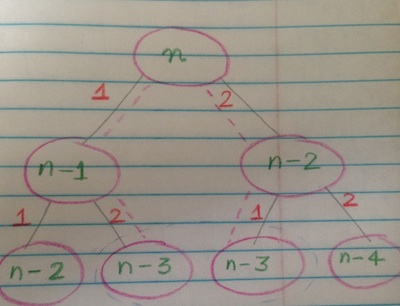 n
1 2
n-1 n-2
1 2 1 2
n-2 n-3 n-3 n-4